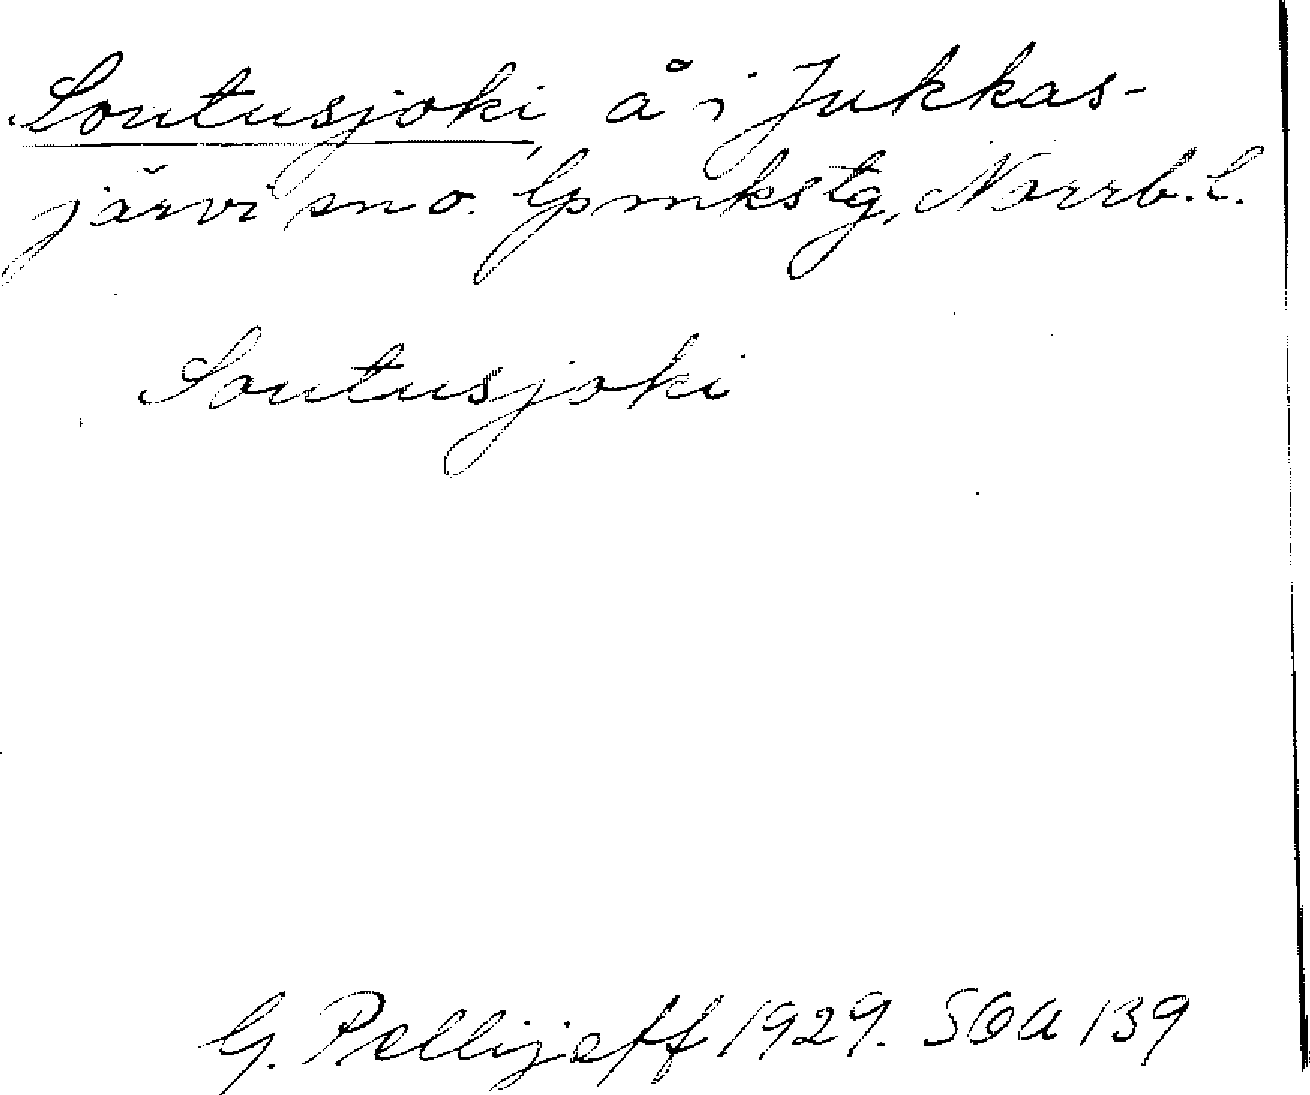 Soutusjoki, å i Jukkas-
järvi sn o. lpmkstg, Norrb. l.
Soutusjoki
G. Pellijeff 1929. SOA 139